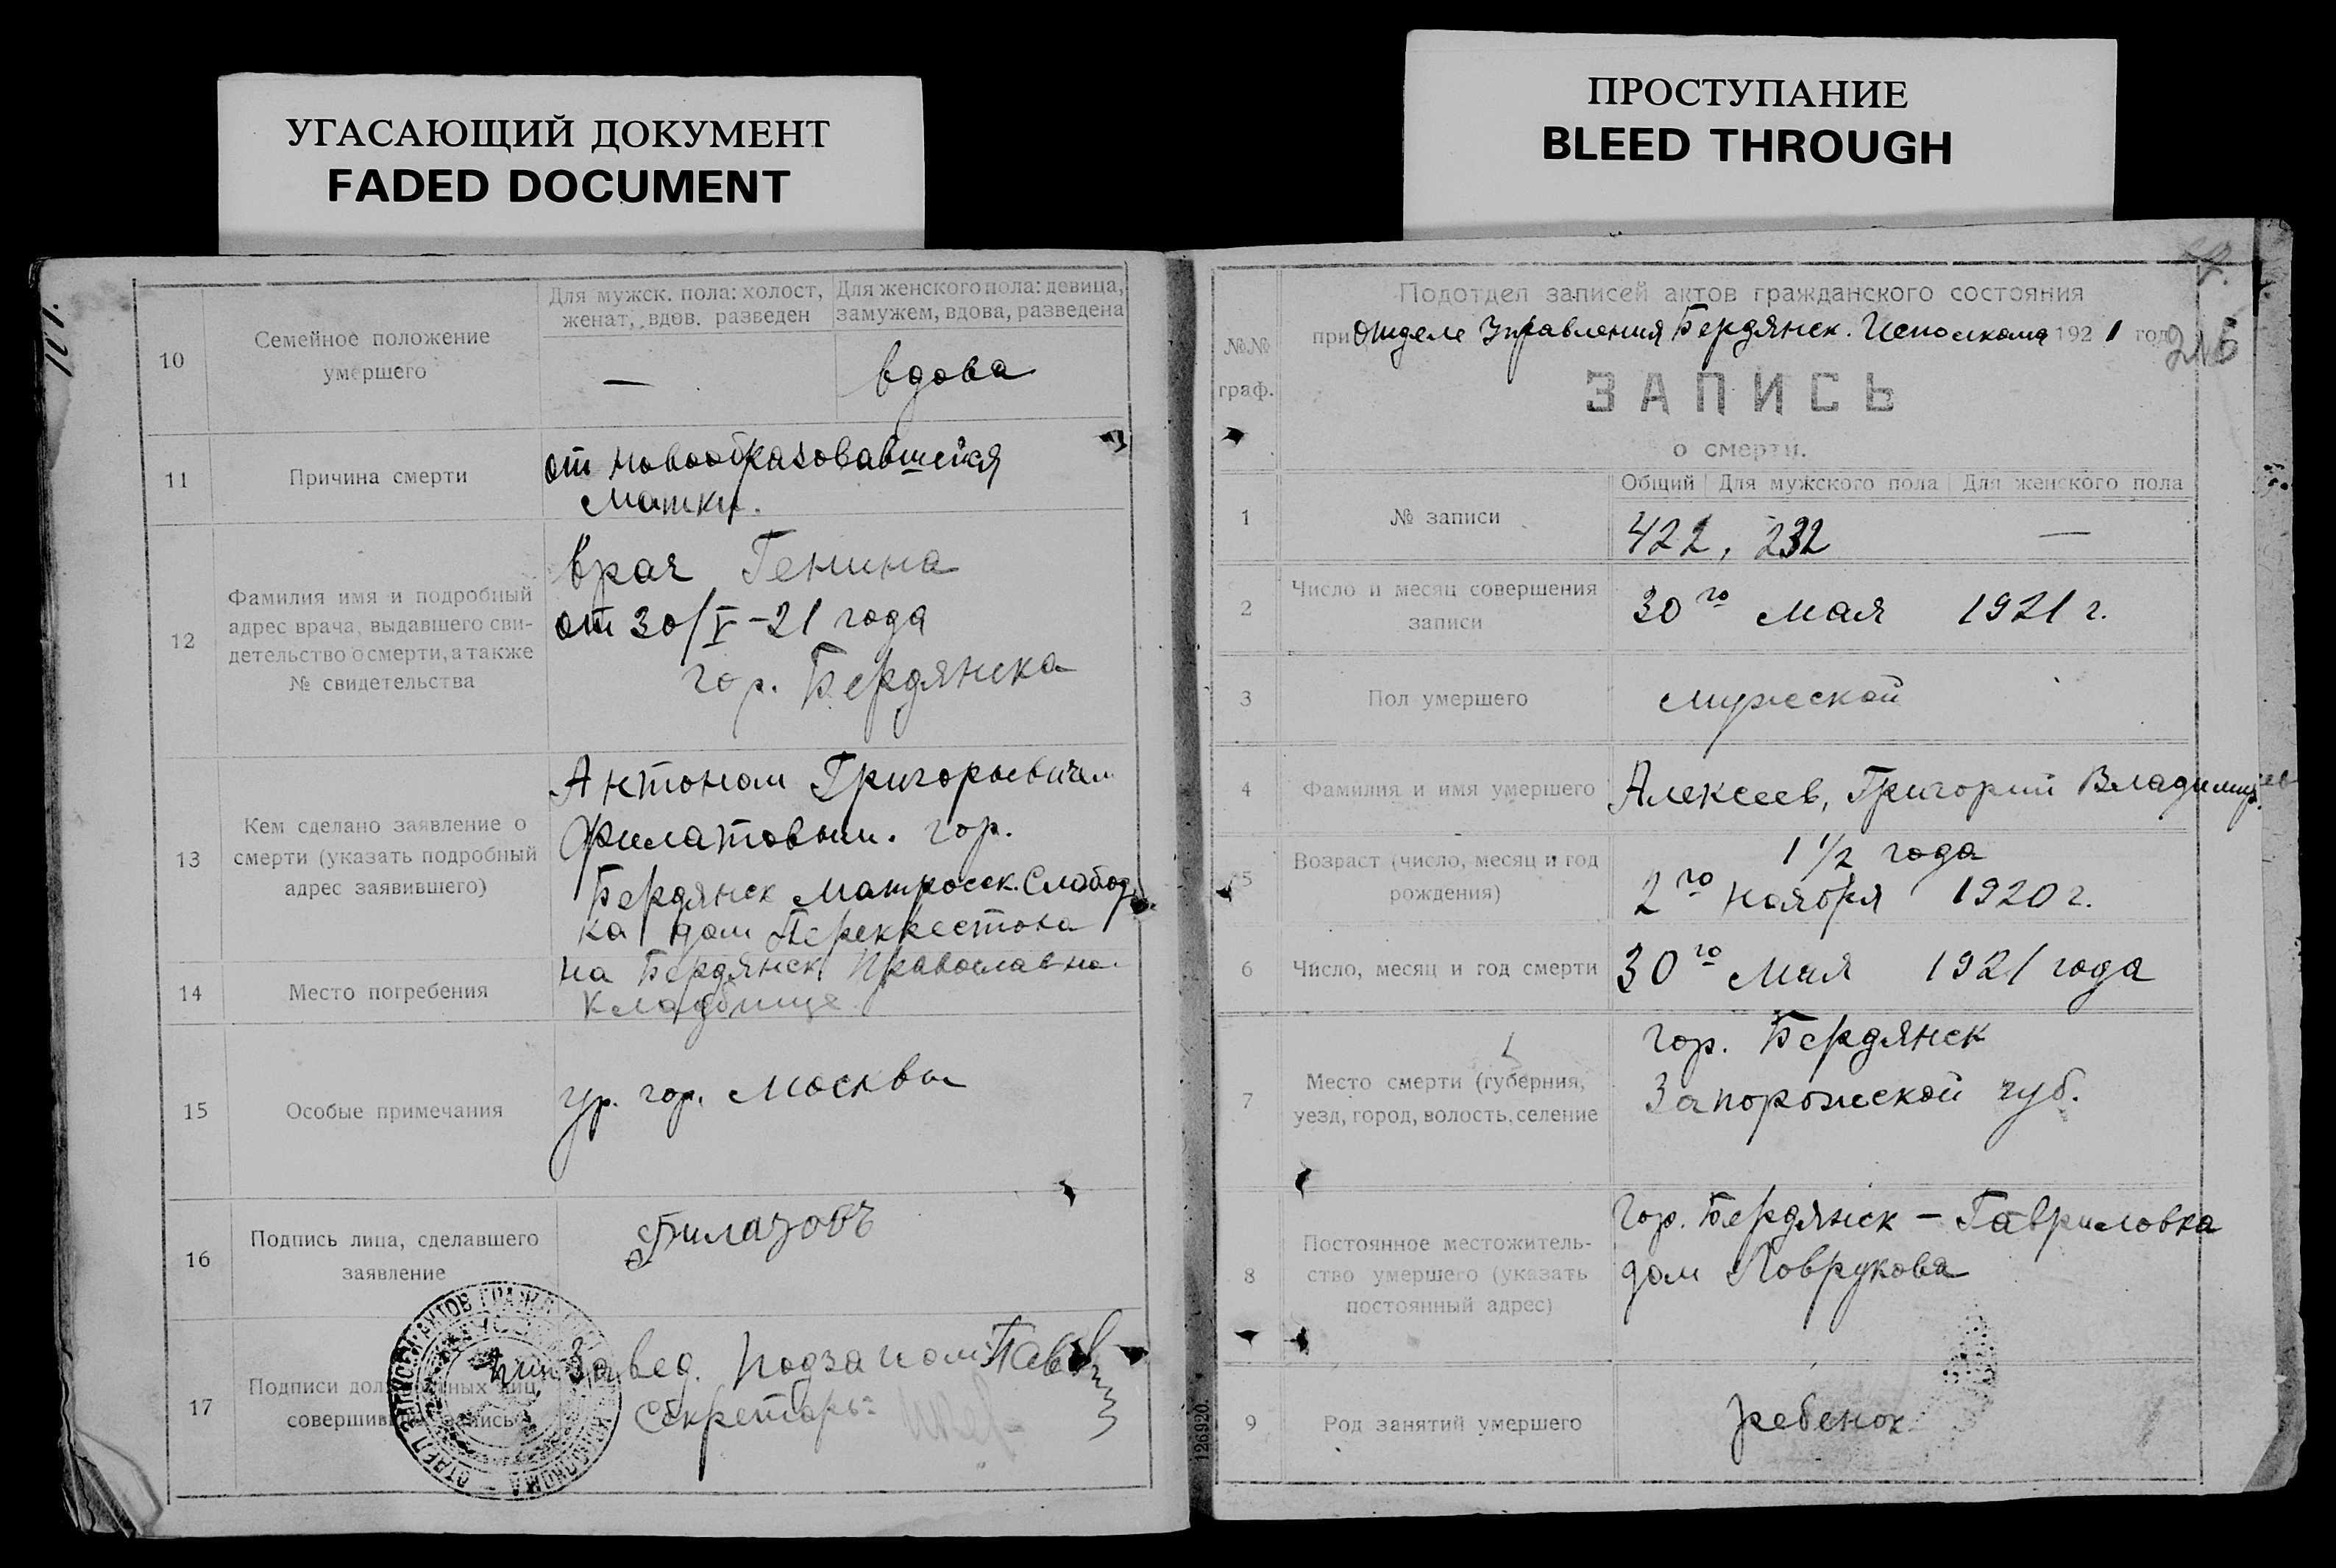 УГАСАЮЩИЙ ДОКУМЕНТ
FADED DOCUMENT
10
Семейное положение
умершего
Для мужск. пола: холост,
женат, вдов. разведен
Для женского пола: девица,
замужем, вдова, разведена
—
вдова
11
Причина смерти
от новообразовавшейся
матки.
12
Фамилия имя и подробный
адрес врача, выдавшего сви-
детельство о смерти, а также
№ свидетельства
врач Генина
от 30/V-21 года
гор. Бердянска
13
Кем сделано заявление о
смерти (указать подробный
адрес заявившего)
Антоном Григорьевичем
Филатовым. гор.
Бердянск Матросск. Слобод
ка дом Перекрестова
14
Место погребения
на Бердянск Православно.
кладбище
15
Особые примечания
ур. гор. Москвы
16
Подпись лица, сделавшего
заявление
Филатовъ
17
Подписи
совершив
Завед. Подзагсом
Секретарь:
126920.
ПРОСТУПАНИЕ
BLEED THROUGH
Подотдел записей актов гражданского состояния
при Отделе Управления Бердянск. Исполкома 1921 год
№№
граф.
ЗАПИСЬ
о смерти.
Общий Для мужского пола Для женского пола
1
№ записи
422, 232 —
2
Число и месяц совершения
записи
30го мая 1921 г.
3
Пол умершего
мужской
4
Фамилия и имя умершего
Алексеев, Григорий Владимир.
5
Возраст (число, месяц и год
рождения)
1 1/2 года
2го ноября 1920 г.
6
Число, месяц и год смерти
30го мая 1921 года
7
Место смерти (губерния,
уезд, город, волость, селение
гор. Бердянск
Запорожской губ.
8
Постоянное местожитель-
ство умершего (указать
постоянный адрес)
Гор. Бердянск – Гавриловка
дом КовRукова
9
Род занятий умершего
ребенок